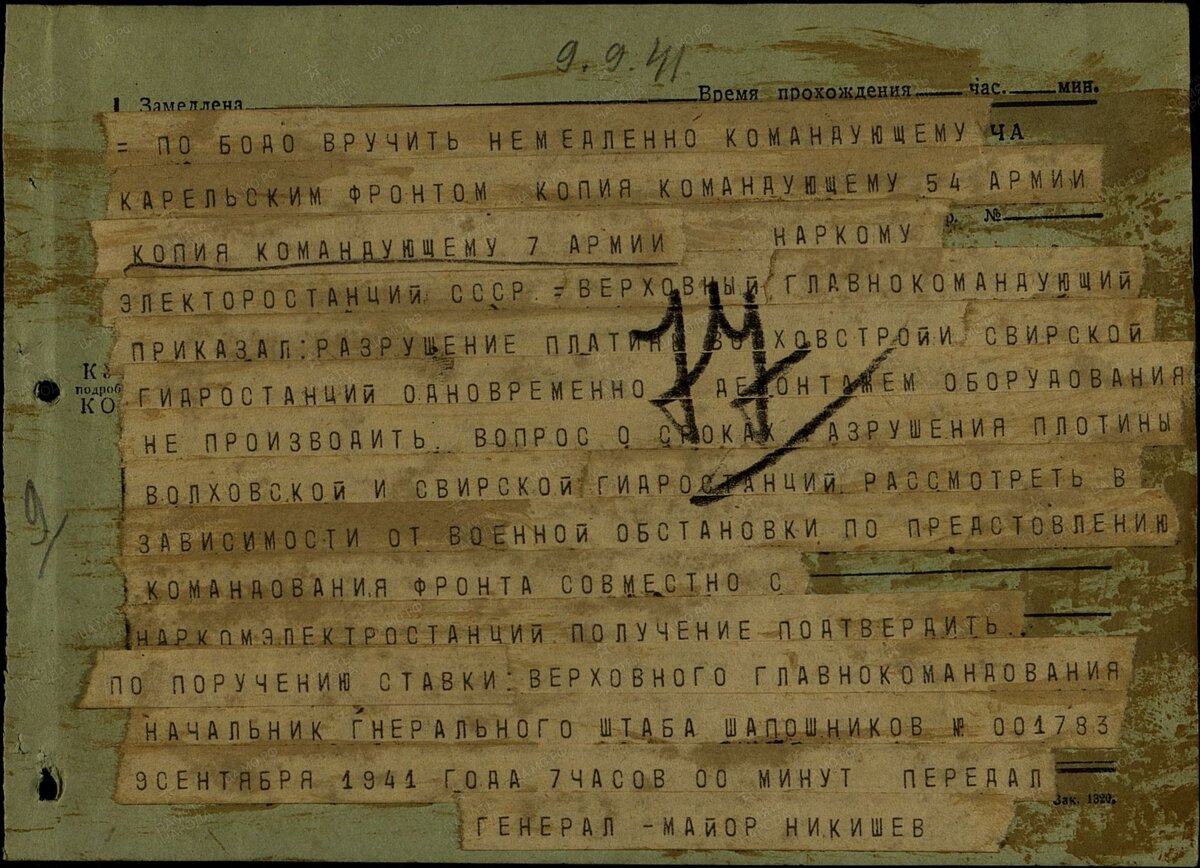 9.9.41
Замедлена Время прохождения час. мин.
= ПО БОДО ВРУЧИТЬ НЕМЕДЛЕННО КОМАНДУЮЩЕМУ ЧА
КАРЕЛЬСКИМ ФРОНТОМ КОПИЯ КОМАНДУЮЩЕМУ 54 АРМИИ
№
КОПИЯ КОМАНДУЮЩЕМУ 7 АРМИИ НАРКОМУ
ЭЛЕКТОРОСТАНЦИЙ СССР = ВЕРХОВНЫЙ ГЛАВНОКОМАНДУЮЩИЙ
ПРИКАЗАЛ: РАЗРУШЕНИЕ ПЛАТИН ВОЛХОВСТРОЙИ СВИРСКОЙ
ГИДРОСТАНЦИЙ ОДНОВРЕМЕННО ДЕМОНТАЖЕМ ОБОРУДОВАНИЯ
НЕ ПРОИЗВОДИТЬ. ВОПРОС О СРОКАХ РАЗРУШЕНИЯ ПЛОТИНЫ
ВОЛХОВСКОЙ И СВИРСКОЙ ГИДРОСТАНЦИЙ РАССМОТРЕТЬ В
ЗАВИСИМОСТИ ОТ ВОЕННОЙ ОБСТАНОВКИ ПО ПРЕДСТОВЛЕНИЮ
КОМАНДОВАНИЯ ФРОНТА СОВМЕСТНО С
НАРКОМЭЛЕКТРОСТАНЦИЙ ПОЛУЧЕНИЕ ПОДТВЕРДИТЬ..
ПО ПОРУЧЕНИЮ СТАВКИ: ВЕРХОВНОГО ГЛАВНОКОМАНДОВАНИЯ
НАЧАЛЬНИК ГНЕРАЛЬНОГО ШТАБА ШАПОШНИКОВ № 001783
9СЕНТЯБРЯ 1941 ГОДА 7ЧАСОВ 00 МИНУТ ПЕРЕДАЛ
Зак. 1320.
ГЕНЕРАЛ -МАЙОР НИКИШЕВ